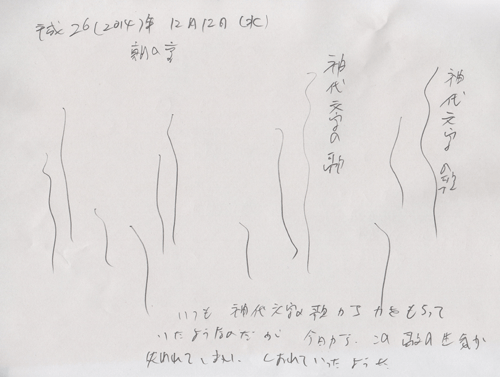 平成26(2014)年 12月12日(水)
朝の音
神代文字の歌
神代文字の歌
いつも 神代文字の歌から 力をもらって
いたようなのだが 今日から、この の生気が
失われて しおれていったようだ